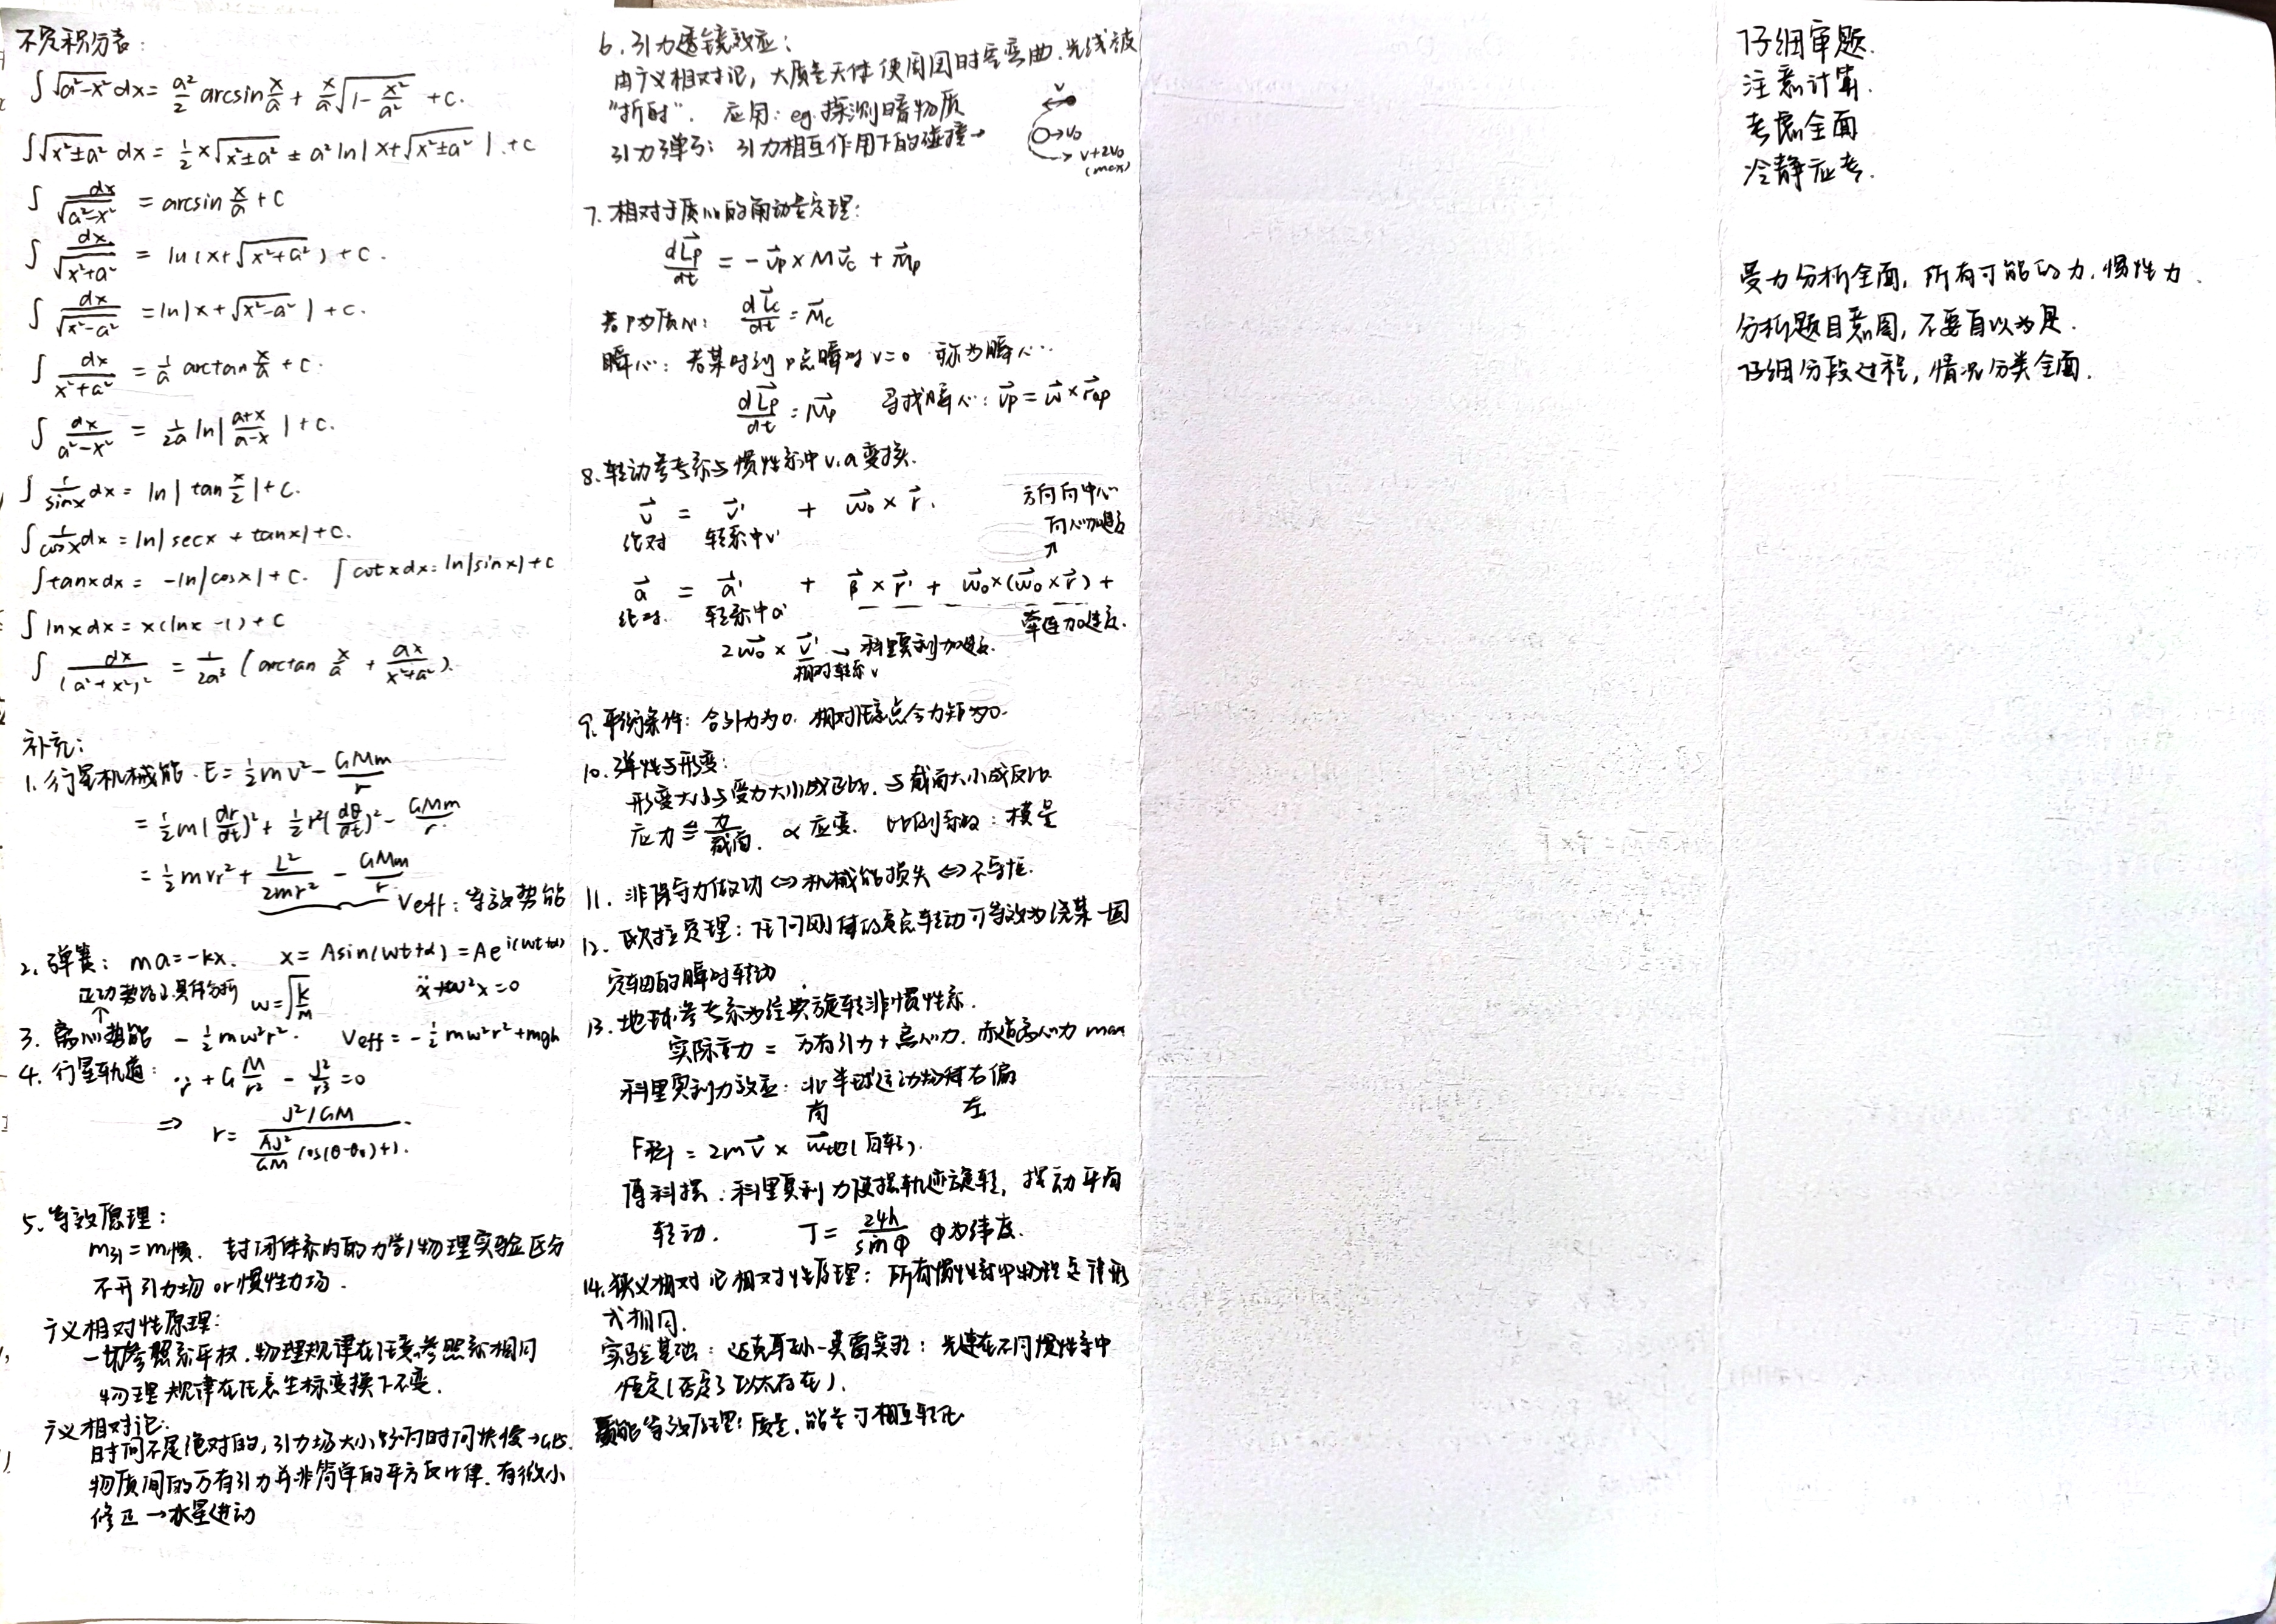 不定积分表:
∫√(a²-x²) dx = a²/2 arcsin x/a + x/a √(1 - x²/a²) + C.
∫√(x²±a²) dx = 1/2 x√(x²±a²) ± a² ln|x+√(x²±a²)| + C
∫ dx/√(a²-x²) = arcsin x/a + C
∫ dx/√(x²+a²) = ln(x+√(x²+a²)) + C.
∫ dx/√(x²-a²) = ln|x+√(x²-a²)| + C.
∫ dx/(x²+a²) = 1/a arctan x/a + C.
∫ dx/(a²-x²) = 1/2a ln|(a+x)/(a-x)| + C.
∫ 1/sinx dx = ln|tan x/2| + C.
∫ 1/cosx dx = ln|secx + tanx| + C.
∫tanx dx = -ln|cosx| + C. ∫cotx dx = ln|sinx| + C
∫lnx dx = x(lnx -1) + C
∫ dx/(a²+x²)² = 1/2a³ (arctan x/a + ax/(x²+a²)).
补充:
1. 行星机械能. E = 1/2 mv² - GMm/r
= 1/2 m(dr/dt)² + 1/2 r²(dθ/dt)² - GMm/r
= 1/2 mvr² + L²/2mr² - GMm/r
Veff: 等效势能
2. 弹簧: ma=-kx. x = Asin(wt+α) = Ae^i(wt+α)
w=√(k/m) ẍ+w²x=0
正功势能↓具体分析
3. 离心势能 -1/2 mw²r². Veff = -1/2 mw²r² + mgh
4. 行星轨道: r̈ + G M/r² - J²/r³ = 0
⇒ r = (J²/GM)/(AJ²/GM cos(θ-θ₀)+1).
5. 等效原理:
m引=m惯. 封闭体系内的力学/物理实验区分
不开引力场or惯性力场.
广义相对性原理:
一切参照系平权. 物理规律在任意参照系相同
物理规律在任意坐标变换下不变.
广义相对论:
时间不是绝对的, 引力场大小影响时间快慢→GPS.
物质间的万有引力并非简单的平方反比律. 有微小
修正→水星进动
6. 引力透镜效应:
由广义相对论, 大质量天体使周围时空弯曲. 光线被
"折射". 应用: eg. 探测暗物质
引力弹弓: 引力相互作用下的碰撞→
v
→v₀
v+2v₀
(max)
7. 相对于质心的角动量定理:
dL⃗p/dt = -v⃗p × Mv⃗c + M⃗p
若P为质心: dL⃗c/dt = M⃗c
瞬心: 若某时刻P点瞬时v=0 称为瞬心..
dL⃗p/dt = M⃗p 寻找瞬心: v⃗p = w⃗ × r⃗op
8. 转动参考系与惯性系中v.a变换.
v⃗ = v⃗' + w⃗₀ × r⃗.
绝对 转系中v'
方向向中心
向心加速度
↑
a⃗ = a⃗' + β⃗ × r⃗ + w⃗₀×(w⃗₀×r⃗) +
绝对. 转系中a' 牵连加速度.
2w⃗₀ × v⃗' → 科里奥利加速度.
相对转系v
9. 平衡条件: 合外力为0. 相对任意点合力矩为0.
10. 弹性与形变:
形变大小与受力大小成正比. 与截面大小成反比
应力≙力/截面. ∝ 应变. 比例系数: 模量
11. 非保守力做功⇔机械能损失⇔不守恒.
12. 欧拉定理: 任何刚体的定点转动可等效为绕某一固
定轴的瞬时转动
13. 地球参考系为经典旋转非惯性系.
实际重力 = 万有引力 + 离心力. 赤道离心力max
科里奥利力效应: 北半球运动物体右偏
南 左
F科 = 2mv⃗ × w⃗地(自转).
傅科摆: 科里奥利力使摆轨迹旋转, 摆动平面
转动. T = 24h/sinφ φ为纬度.
14. 狭义相对论相对性原理: 所有惯性系中物理定律形
式相同.
实验基础: 迈克耳孙-莫雷实验: 光速在不同惯性系中
恒定(否定了以太存在).
质能等效原理: 质量. 能量可相互转化.
仔细审题.
注意计算.
考虑全面
冷静应考.
受力分析全面, 所有可能的力. 惯性力.
分析题目意图, 不要自以为是.
仔细分段过程, 情况分类全面.